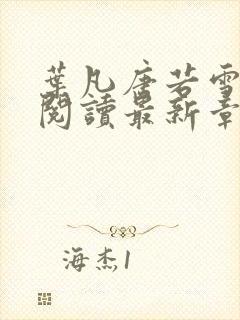 葉凡唐若雪
閱讀最新章
海杰1